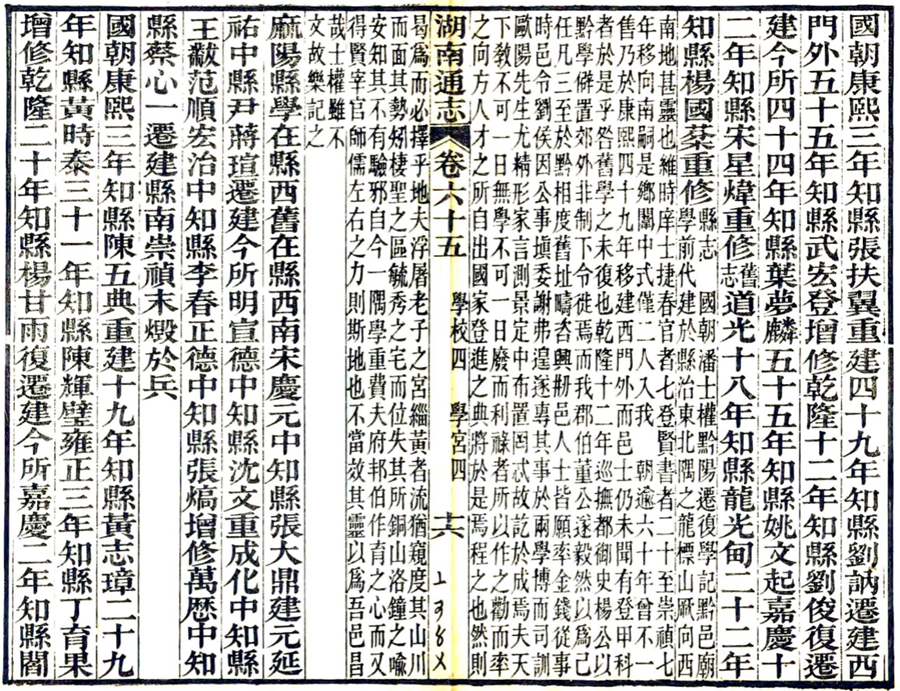 國朝康熙三年知縣張扶翼重建四十九年知縣劉訥遷建西
門外五十五年知縣武宏登增修乾隆十二年知縣劉俊復遷
建今所四十四年知縣葉夢麟五十五年知縣姚文起嘉慶十
二年知縣宋星煒重修舊志道光十八年知縣龍光甸二十二年
知縣楊國棻重修縣志 國朝潘士權黔陽遷復學記黔邑廟
學前代建於縣治東北隅之龍標山厥向西
南地甚靈也維時庠士捷春官者七登賢書者二十至崇禎七
年移向南嗣是鄉闈中式僅二人入我 朝逾六十年曾不一
舊乃於康熙四十九年移建西門外而邑士仍未聞有登甲科
者於是乎咎舊學之未復也乾隆十二年巡撫都御史楊公以
黔學僻置郊外非制下令徙焉而我郡伯董公遂毅然以為己
任凡三至於黔相度舊址疇咨興剏邑人士皆願率金錢從事
時邑令劉侯因公事填委謝弗遑遂專其事於兩學博而司訓
歐陽先生尤精形家言測景定中布置罔忒故訖於成焉夫天
下敎不可一日無學不可一日廢而利祿者所以作之勸而率
之向方人才之所自出國家登進之典將於是焉程之也然則
湖南通志 卷六十五 學校四 學宮四 十六
曷為而必擇乎地夫浮屠老子之宮緇黃者流猶窺度其山川
而面其勢矧棲聖之區毓秀之宅而位失其所銅山洛鐘之喻
安知其不有驗邪自今一隅學重費夫府邦伯作育之心而又
得賢宰官師儒左右之力則斯地也不當效其靈以為吾邑昌
哉士權雖不
文故樂記之
麻陽縣學在縣西舊在縣西南宋慶元中知縣張大鼎建元延
祐中縣尹蔣瑄遷建今所明宣德中知縣沈文重成化中知縣
王黻范順宏治中知縣李春正德中知縣張熇增修萬歷中知
縣蔡心一遷建縣南崇禎末燬於兵
國朝康熙三年知縣陳五典重建十九年知縣黃志璋二十九
年知縣黃時泰三十一年知縣陳輝璧雍正三年知縣丁育果
增修乾隆二十年知縣楊甘雨復遷建今所嘉慶二年知縣閻